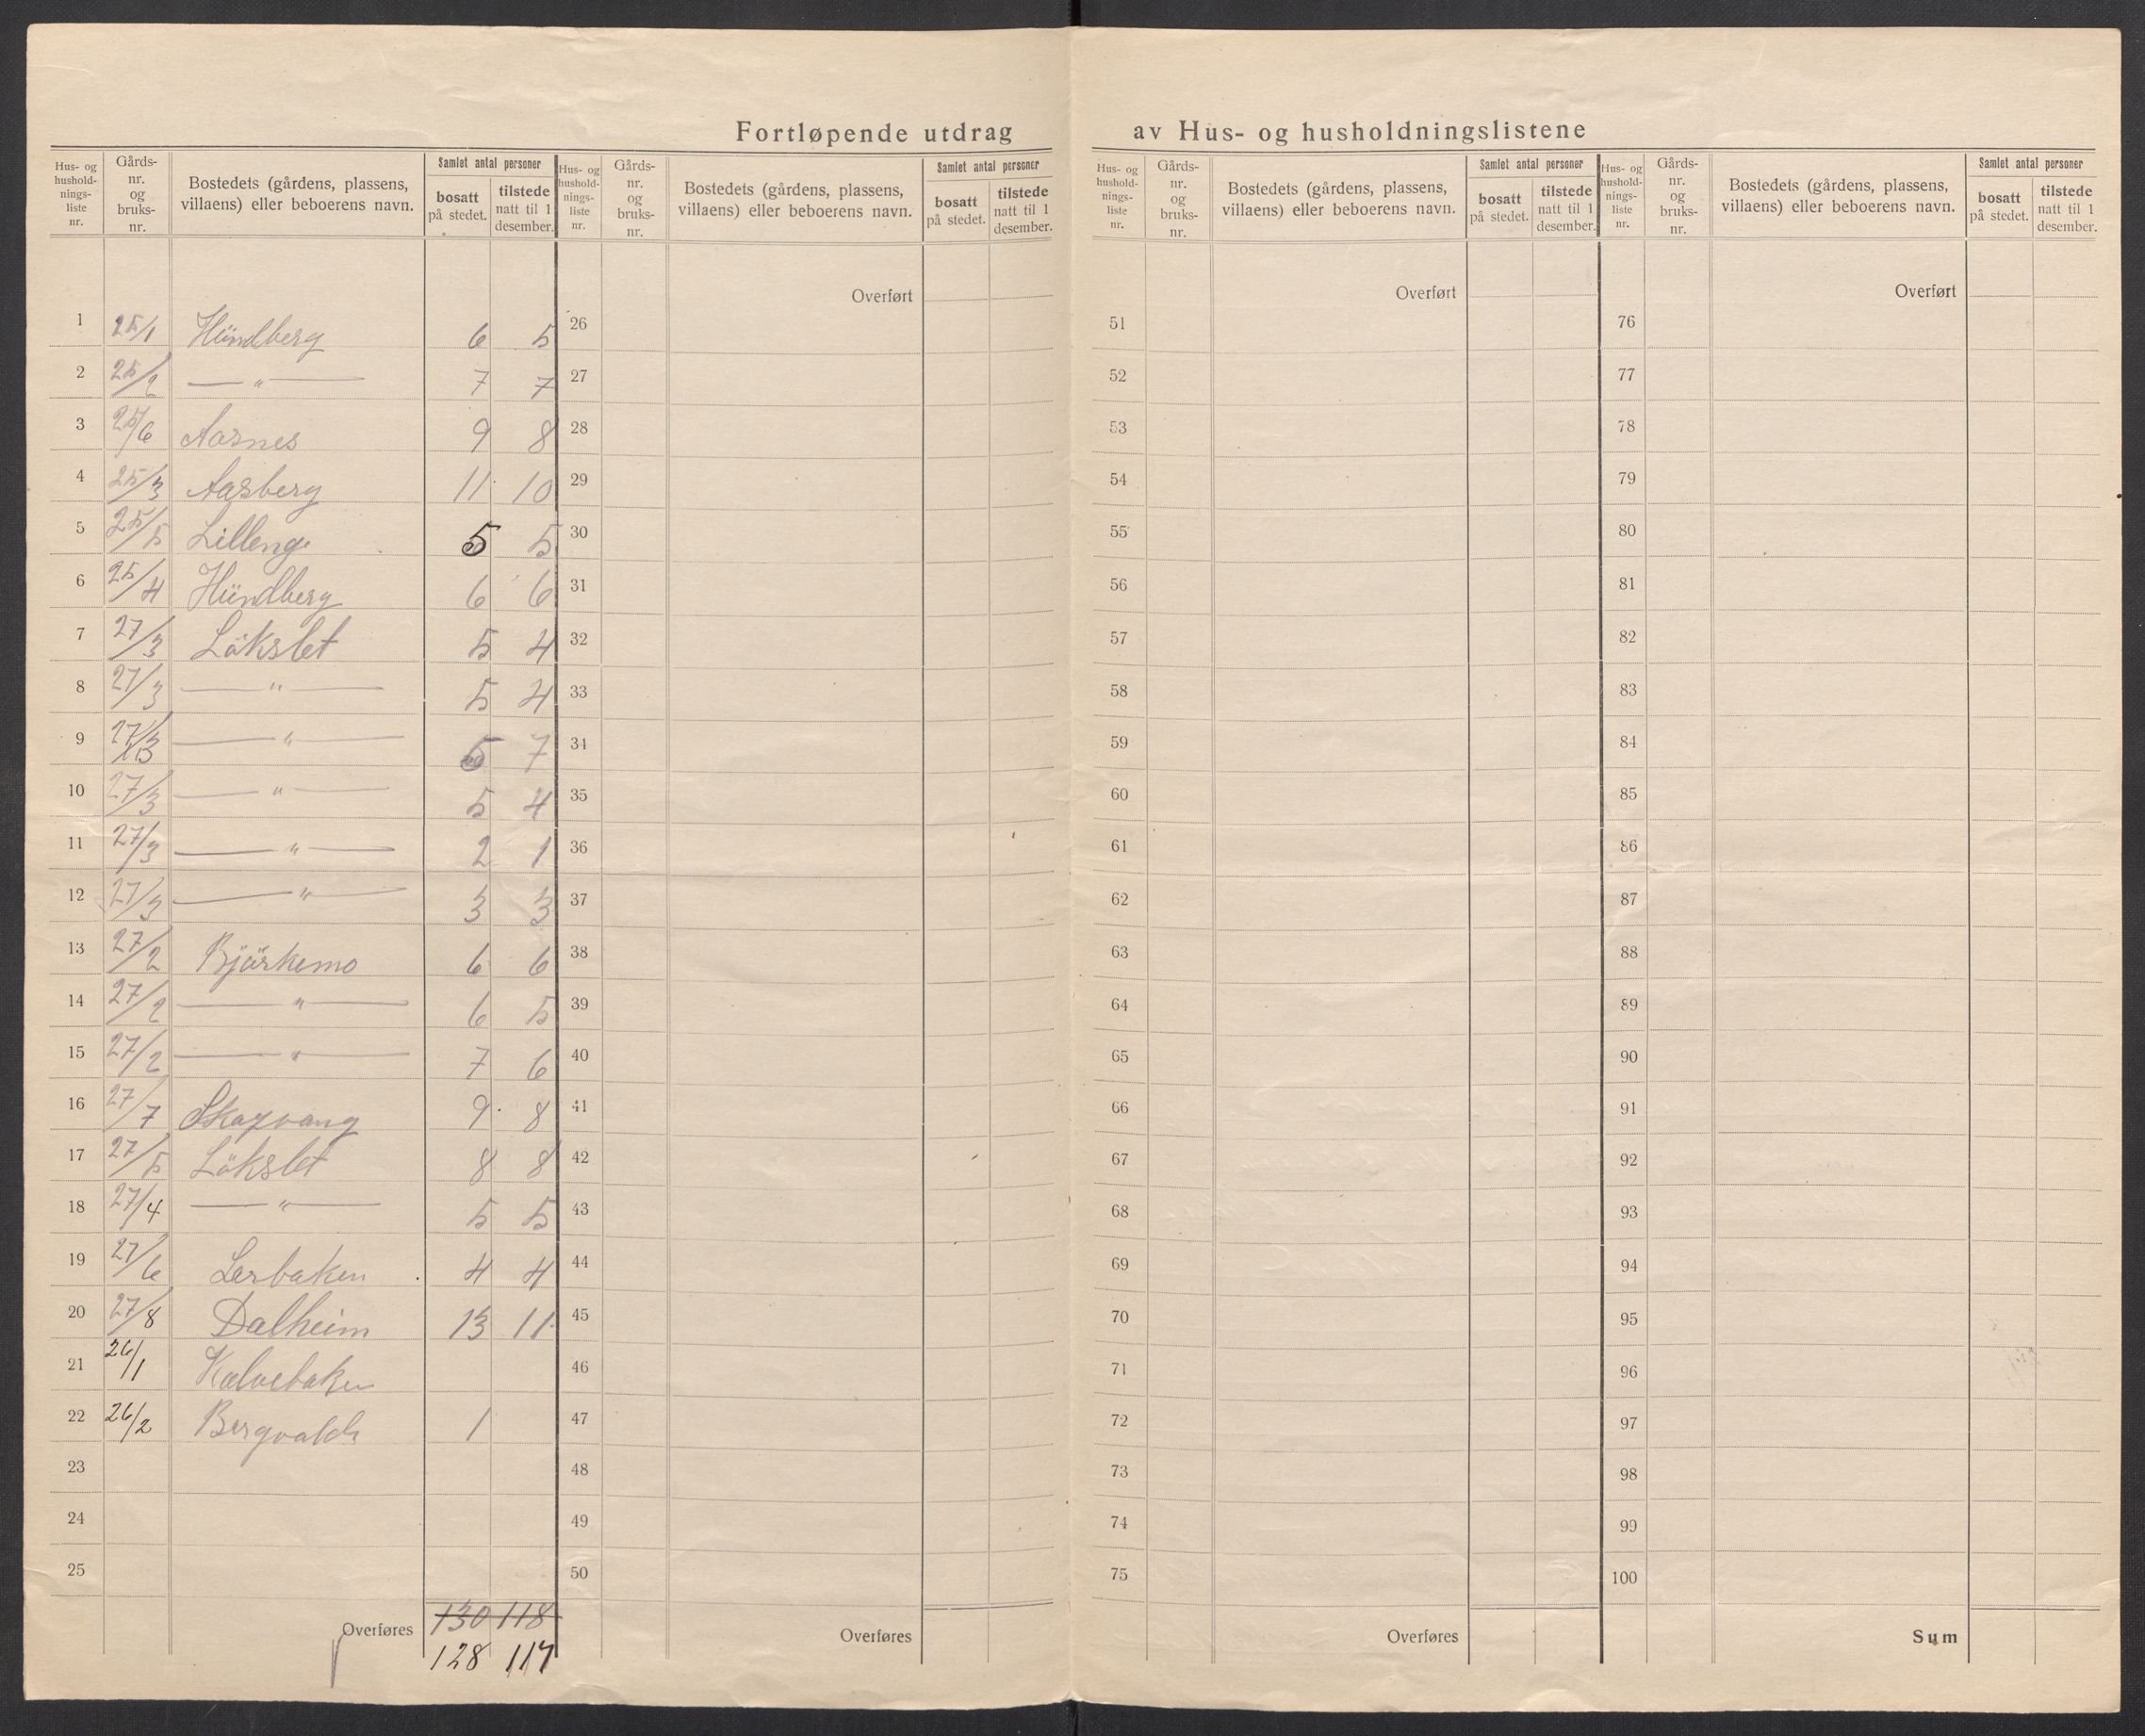 Fortløpende utdrag av Hus- og husholdningslistene
Hus- og hushold- nings- liste nr. | Gårds- nr. og bruks- nr. | Bostedets (gårdens, plassens, villaens) eller beboerens navn. | Samlet antal personer | bosatt på stedet. | tilstede natt til 1 desember.
1 25/1 Hündberg 6 5
2 25/2 — " — 7 7
3 25/6 Aasnes 9 8
4 25/3 Aasberg 11 10
5 25/5 Lilleng 5 5
6 25/4 Hündberg 6 6
7 27/3 Løkslet 5 4
8 27/3 — " — 5 4
9 27/3 — " — 5 7
10 27/3 — " — 5 4
11 27/3 — " — 2 1
12 27/3 — " — 3 3
13 27/2 Bjørkemo 6 6
14 27/2 — " — 6 5
15 27/2 — " — 7 6
16 27/7 Skogvang 9 8
17 27/5 Løkslet 8 8
18 27/4 — " — 5 5
19 27/6 Lerbaken 4 4
20 27/8 Dalheim 13 11
21 26/1 Kalvebaken
22 26/2 1
23
24
25
Overføres 130 118
128 117
Hus- og hushold- nings- liste nr. | Gårds- nr. og bruks- nr. | Bostedets (gårdens, plassens, villaens) eller beboerens navn. | Samlet antal personer | bosatt på stedet. | tilstede natt til 1 desember.
Overført
26
27
28
29
30
31
32
33
34
35
36
37
38
39
40
41
42
43
44
45
46
47
48
49
50
Overføres
Hus- og hushold- nings- liste nr. | Gårds- nr. og bruks- nr. | Bostedets (gårdens, plassens, villaens) eller beboerens navn. | Samlet antal personer | bosatt på stedet. | tilstede natt til 1 desember.
Overført
51
52
53
54
55
56
57
58
59
60
61
62
63
64
65
66
67
68
69
70
71
72
73
74
75
Overføres
Hus- og hushold- nings- liste nr. | Gårds- nr. og bruks- nr. | Bostedets (gårdens, plassens, villaens) eller beboerens navn. | Samlet antal personer | bosatt på stedet. | tilstede natt til 1 desember.
Overført
76
77
78
79
80
81
82
83
84
85
86
87
88
89
90
91
92
93
94
95
96
97
98
99
100
Sum